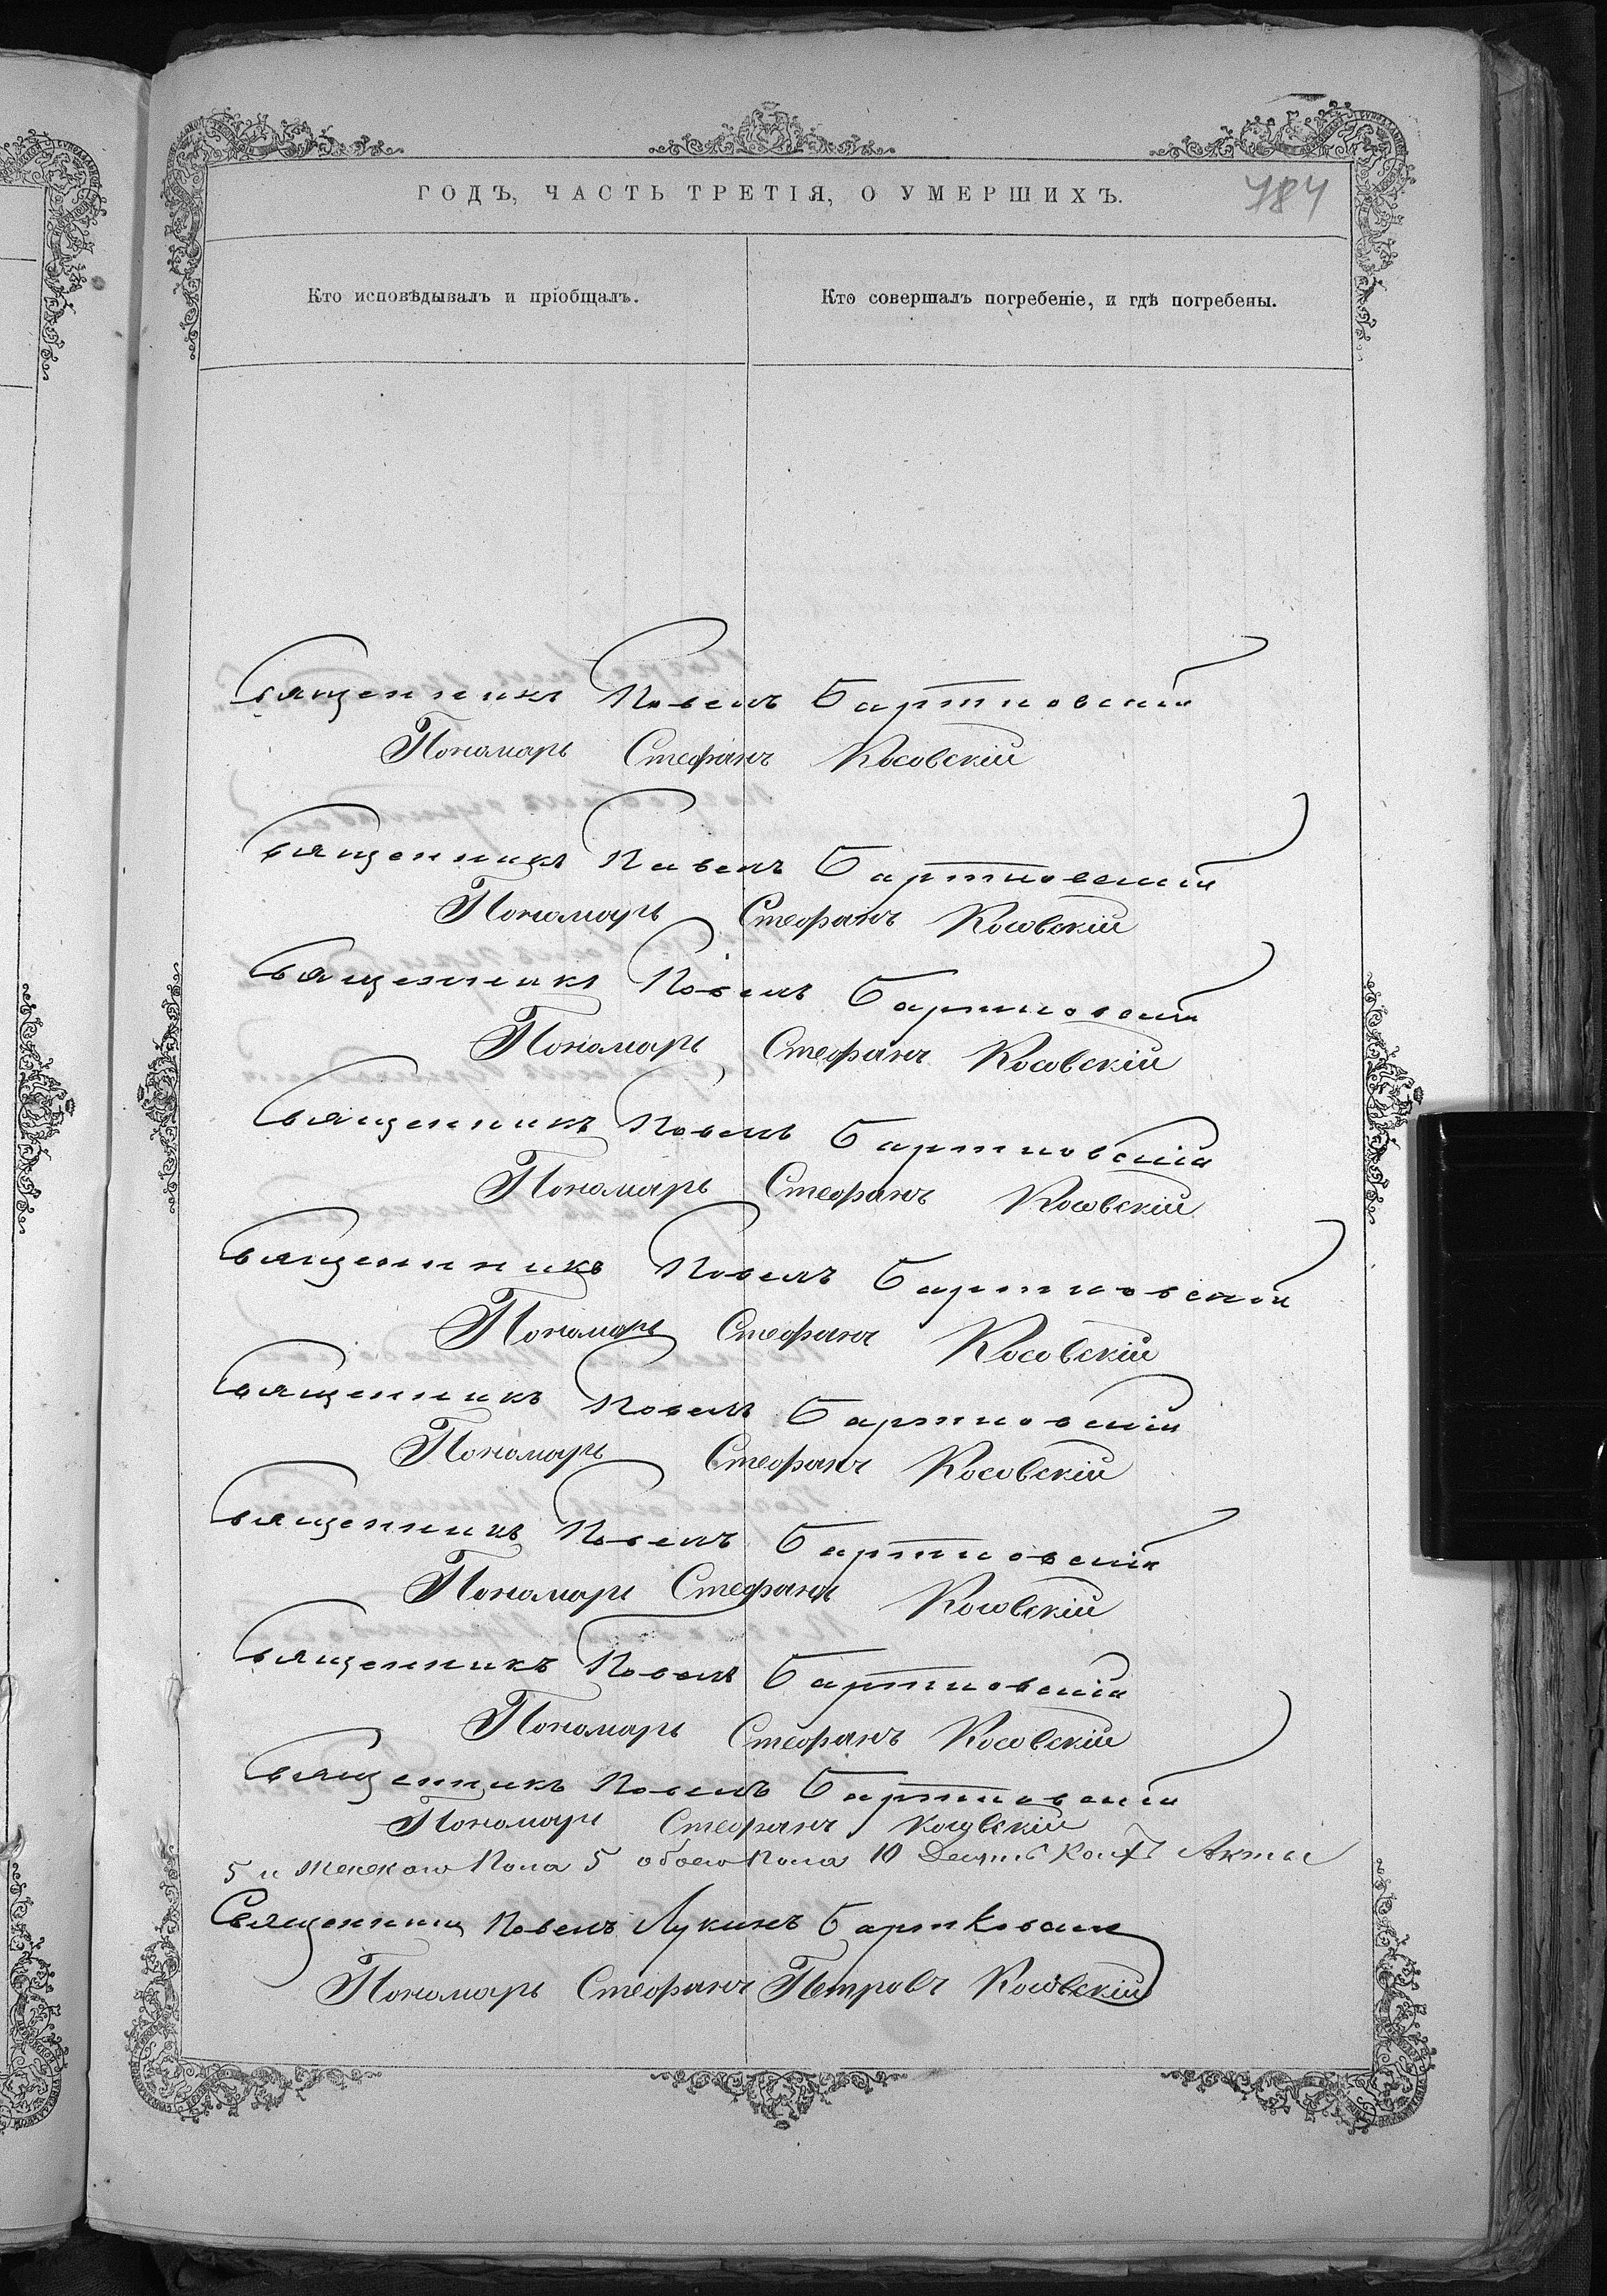 ГОДЪ, ЧАСТЬ ТРЕТІЯ, О УМЕРШИХЪ.
784
Кто исповѣдывалъ и пріобщалъ.
Кто совершалъ погребеніе, и гдѣ погребены.
Священникъ Павелъ Бартновскій
Пономарь Стефанъ Косовскій
Священникъ Павелъ Бартновскій
Пономарь Стефанъ Косовскій
Священникъ Павелъ Бартновскій
Пономарь Стефанъ Косовскій
Священникъ Павелъ Бартновскій
Пономарь Стефанъ Косовскій
Священникъ Павелъ Бартновскій
Пономарь Стефанъ Косовскій
Священникъ Павелъ Бартновскій
Пономарь Стефанъ Косовскій
Священникъ Павелъ Бартновскій
Пономарь Стефанъ Косовскій
Священникъ Павелъ Бартновскій
Пономарь Стефанъ Косовскій
Священникъ Павелъ Бартновскій
Пономарь Стефанъ Косовскій
5 и женскаго пола 5 обоего пола 10 Десять
Священникъ Павелъ Лукинъ
Пономарь Стефанъ Петровъ Косовскій